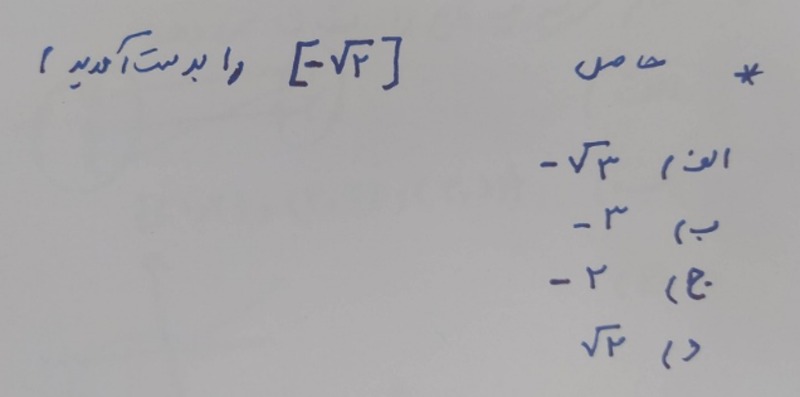 * حاصل [-√۲] را بدست آورید )
الف) -√۳
ب) -۳
ج) -۲
د) √۲